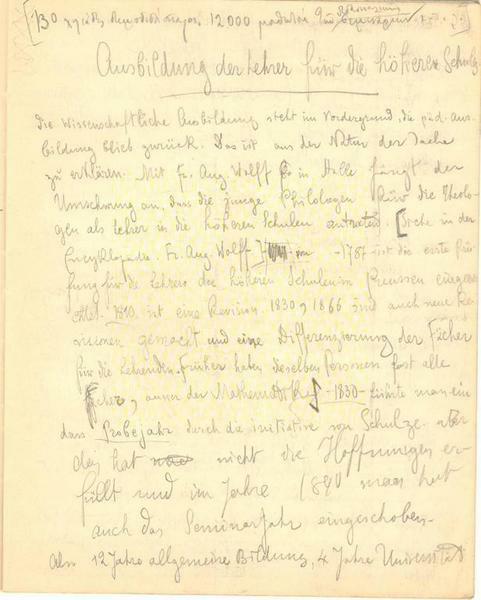 12000
Ausbildung der Lehrer für die höheren Schulen
Die Wissenschaftliche Ausbildung steht im Vordergrund, die päd. Aus-
bildung blieb zurück. Das ist aus der Natur der Sache
zu erklären. Mit Fr. Aug. Wolff in Halle fängt der
Umschwung an, dass die junge Philologen für die Theolo-
gen als Lehrer in die höheren Schulen antraten. [Siehe in der
Encyklopädie. Fr. Aug. Wolff] -1787 ist die erste Prü-
fung für die Lehrer der höheren Schulen in Preussen einger
ettet. 1810 ist eine Revision. 1830, 1866 sind auch neue Re-
visionen gemacht und eine Differenzierung der Fächer
für die Lehrenden. Früher haben dieselben Personen fast alle
Fächer, ausser der Mathematik -1830- führte man ein
dass Probejahr durch die Initiative von Schulze. aber
das hat nicht die Hoffnungen er-
füllt und im Jahre 1890 man hat
auch das Seminarjahr eingeschoben-
Also 12 Jahre allgemeine Bildung, 4 Jahre Universität